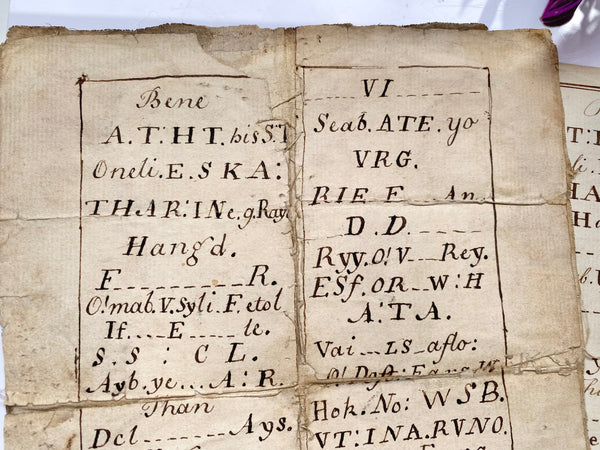 Bene
A.T:HT.his S:T
Oneli.E.SKA:
THAR:INe,g.Ray
Hang'd.
F_ _ _ _ _ _ _ _ _R.
O!mab.V.Syli.F.etol
If._ _ _E_ _ _ _le.
S.S : C L.
Ayb.ye...A:R.
Than
Dcl_ _ _ _ _ _ _Ays.
_ _ _ _ _ _VI_ _ _ _ _ _
Seab.ATE.yo
VRG.
RIE F_ _ An.
D.D._ _ _ _ _
Ryy.O!V_ _ _Rey.
ESf.OR_ _W:H
A:TA.
Vai_ _ _LS_aflo:
Hok.No: WSB.
VT:INA.RVNO.